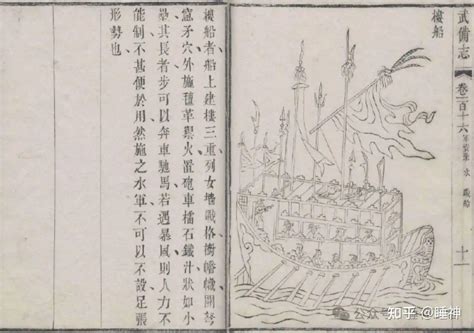 武備志 卷一百十六 軍資乘 水 戰船
樓船
樓船者船上建樓三重列女墻戰格樹幡幟開弩
窻矛穴外施氊革禦火置砲車檑石鐵汁狀如小
壘其長者步可以奔車馳馬若遇暴風則人力不
能制不甚便於用然施之水軍不可以不設足張
形勢也
公众号
知乎 @睡神